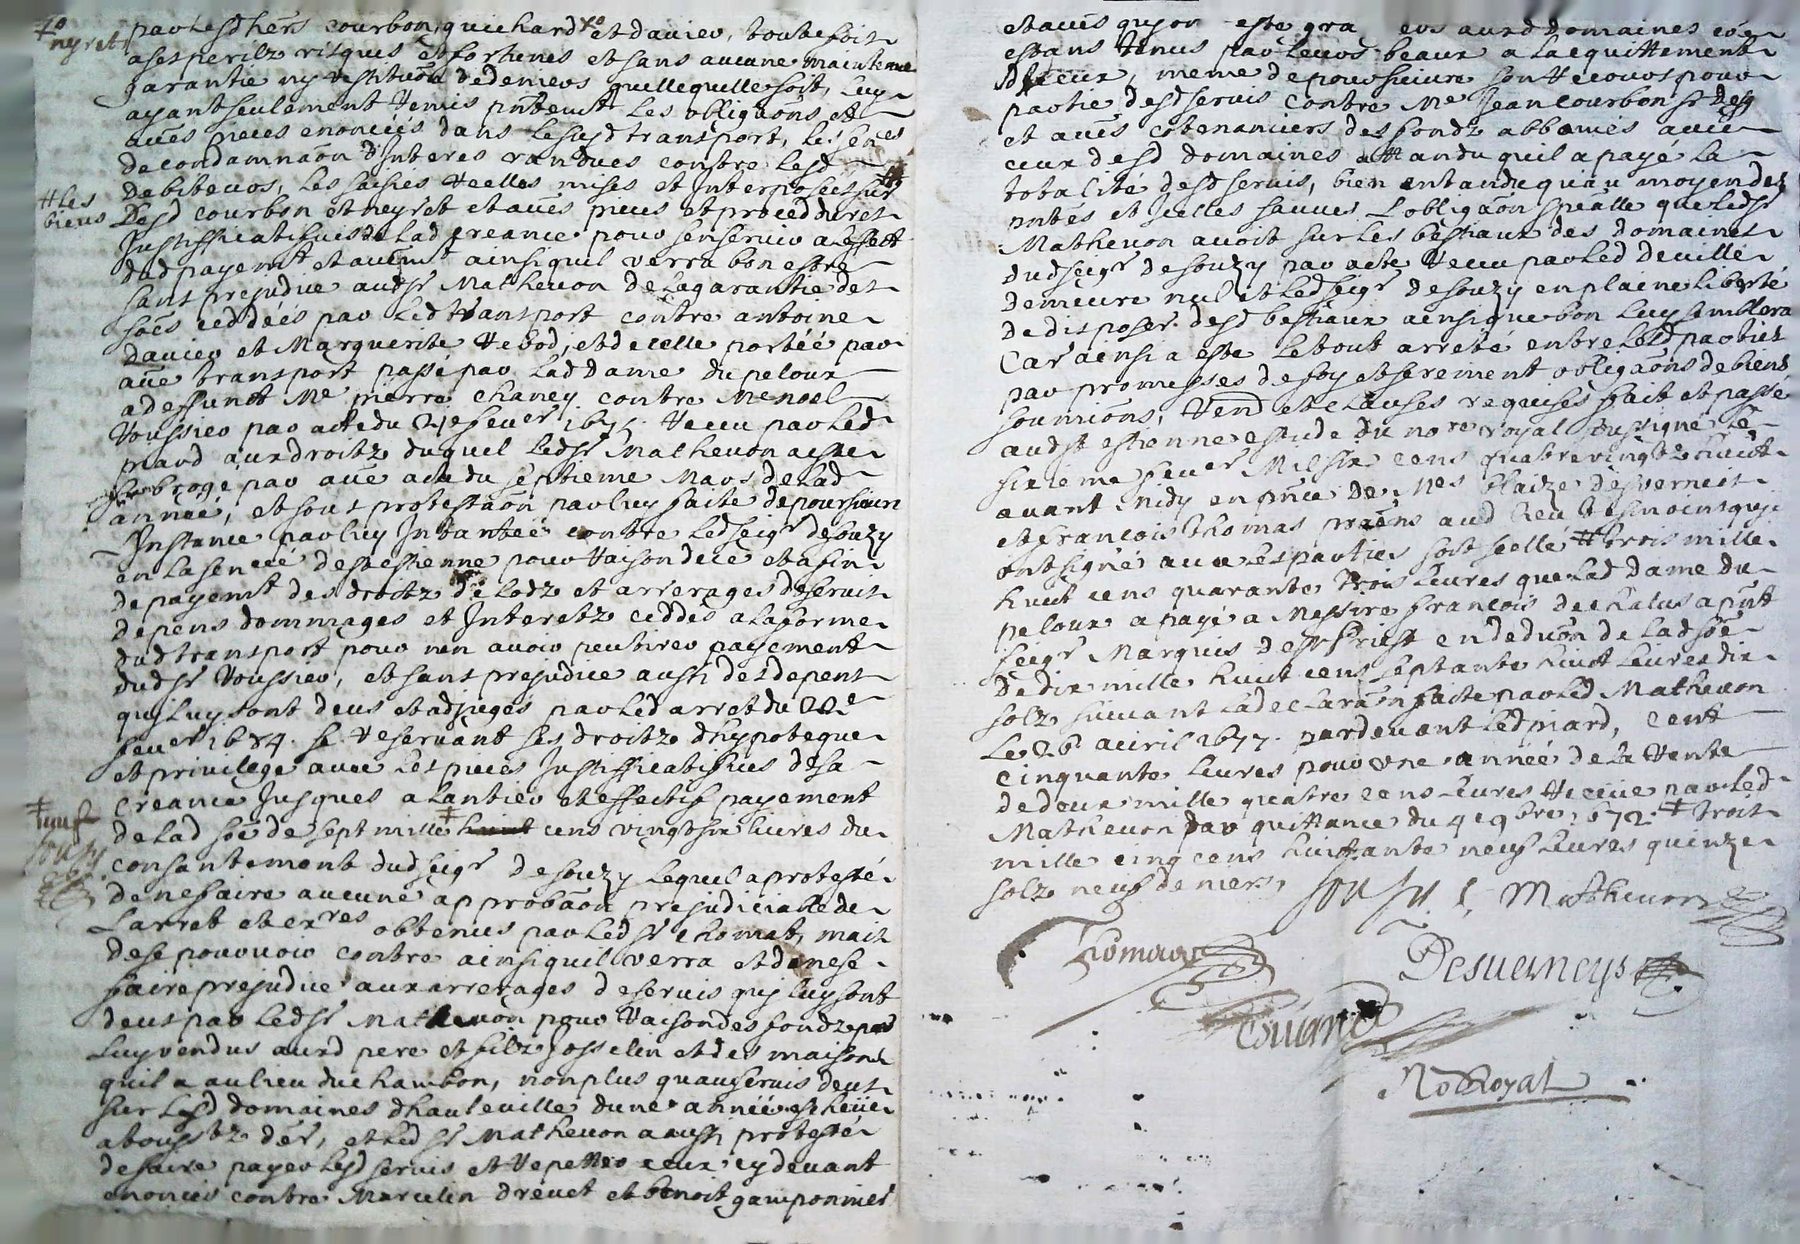 par lesd hers courbon, guichard et davier, toutefois
neyret
a ses perilz risques et fortunes et sans aucune maintenue
garantie ny restituon de deniers quelle quelle soit, luy
ayant seulement remis pntemt les obligaons et
aues pieces enoncées dans le susd transport, les snces
de condamnaon d'Interes randues contre lesd
debiteurs, les saisies reelles mises et Interposées sur
les biens
desd courbon et neyret et aues pieces et proceddures
Justifficatifues de lad creance pour sen servir a leffett
dud payemt et autremt ainsi quil verra bon estre
sans prejudice audsr Matheuon de la garantie des
soes ceddées par led transport contre antoine
davier et Marguerite rebod, et de celle portéé par
aue transport passé par lad dame du peloux
a deffunct Me pierre chaney contre Me noel
Voussier par acte du feuer 1675 receu par led
piard aux droitz duquel ledsr Matheuon a este
subrogé par aue acte du septieme Mars de lad
année, et sous protestaon par luy faite de poursuivre
Instance par luy Intantéé contre led seigr de souzy
en la senceé de st estienne pour raison de ce et afin
de payemt des droitz de lodz et arrerages de servis
depens dommages et Interetz ceddés a la forme
dud transport pour nen avoir peu tirer payement
dudsr Voussier, et sans prejudice aussi des depens
quj luy sont deus et adjugés par led arret du 22e
feuer 1684. se reservant ses droitz dhypoteque
et privilege auec les pieces Justifficatifues de sa
creance Jusques a lantier et effectif payement
neuf
de lad soe de sept mille cens vingt six liures du
consantement dud seigr de souzy lequel a protesté
de ne faire aucune approbaon prejudiciable de
larret et exres obtenus par led sr thomas, mais
de se pourvoir contre ainsi quil verra et de ne se
faire prejudice aux arrerages de servis quj luy sont
deus par ledsr Matheuon pour raison des fondz par
luy vendus auxd pere et filz Josselin et des maisons
quil a au lieu du chambon, non plus quau servis deus
sur lesd domaines dhauteuille dune année escheüe
a toussts der, et led sr Matheuon a aussi protesté
de faire payer lesd servis et repetter ceux cy devant
enoncés contre Marcelin drevet et benoit gamponnies
et aues quj on este gra eus auxd domaines co͂e
estans tenus par leurs beaux a lacquittement
diceux, meme de poursuivre son recours pour
partie desd servis contre Me Jean courbon sr des
et aues cotenanciers des fondz abbonnés auec
ceux desd domaines attandu quil a payé la
totalité desd servis, bien entandu quau moyen des
pntes et Jcelles sauues, lobligaon spealle que ledsr
Matheuon avoit sur les bestiaux des domaines
dud seigr de souzy par acte receu par led deville
demeure nul et led seigr de souzy en plaine liberté
de disposer desd bestiaux ainsi que bon luy semblera
Car ainsi a esté le tout arreté entre lesd parties
par promesses de foy et serement obligaons de biens
soumions, renon et clauses requises fait et passé
aud st estienne estude du nore royal soussigné le
sixieme feuer Mil six cens quatre vingtz huict
avant midy en pnce de Mes blaize desverneis
et francois thomas praens aud lieu tesmoins quj
ont signé auec les parties soit scellé trois mille
huit cens quarante trois liures que lad dame du
peloux a payé a Messire francois de chalus apnt
seigr Marquis de st Priest en deduon de lad soe
de dix mille huit cens septante huict liures dix
solz suiuant la declaraon faite par led Matheuon
le 26 auril 1677. pardeuant led piard, cent
cinquante liures pour une année de la rente
de doux mille quatre cens liures receüe par led
Matheuon par quittance du 4e 9bre 1672. trois
mille cinq cens huittante neuf liures quinze
solz neuf deniers,
souzy
Matheuon
Thomas
Desverneys
No Royal